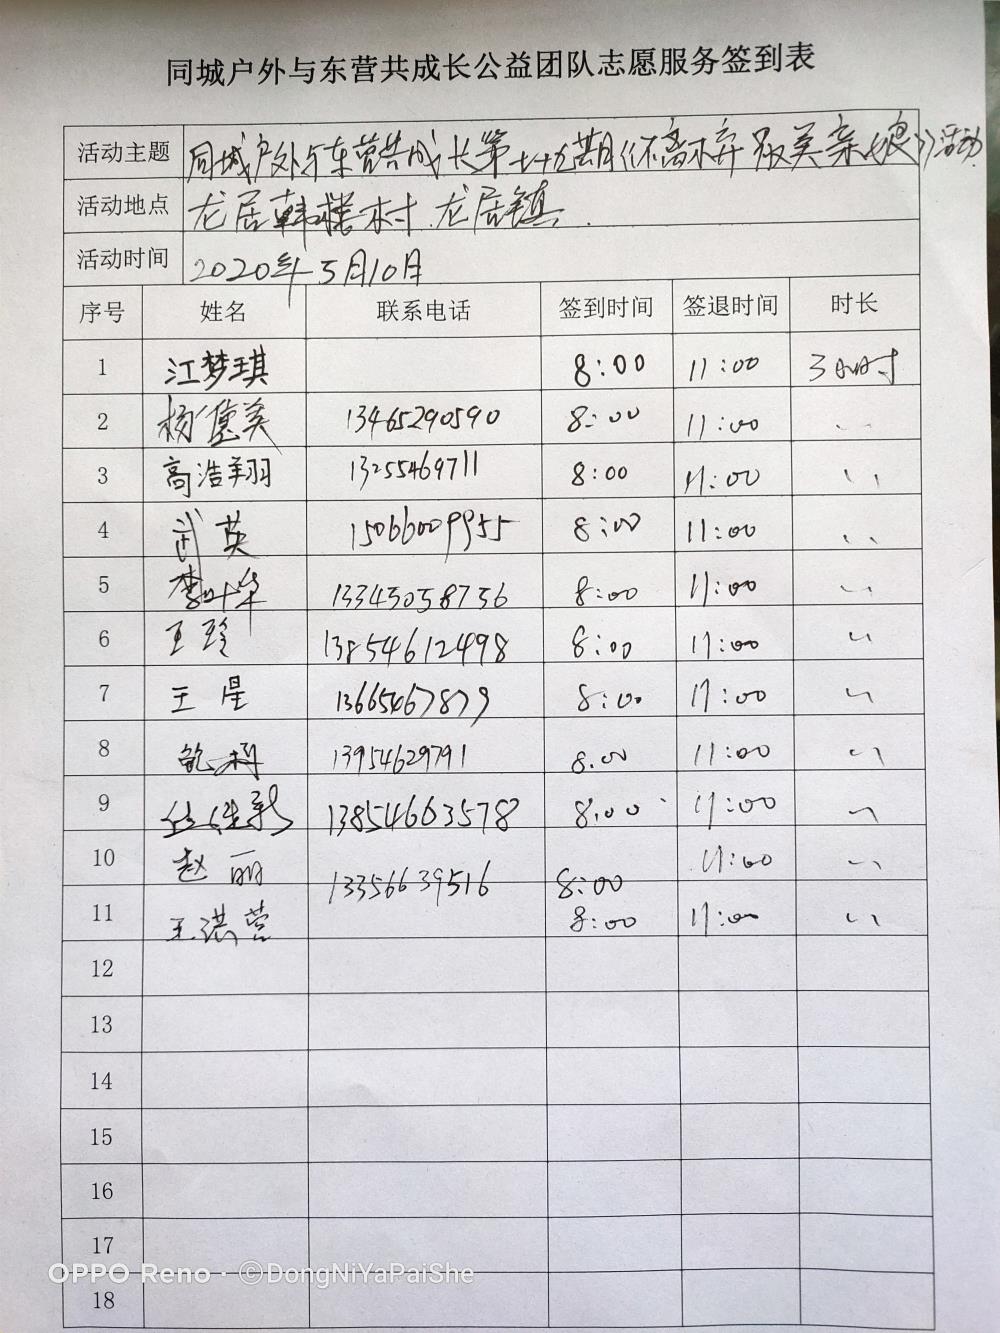 同城户外与东营共成长公益团队志愿服务签到表
活动主题 同城户外与东营共成长第 期《不离不弃 最美亲娘》活动
活动地点 龙居韩楼村 龙居镇
活动时间 2020年5月10日
序号 姓名 联系电话 签到时间 签退时间 时长
1 江梦琪 8:00 11:00 3小时
2 杨俊英 13465290590 8:00 11:00 〃
3 高浩翔 13255469711 8:00 11:00 〃
4 武英 15066009955 8:00 11:00 〃
5 李叶华 13345058756 8:00 11:00 〃
6 王玲 13854612498 8:00 11:00 〃
7 王星 13665467879 8:00 11:00 〃
8 13954629791 8:00 11:00 〃
9 13854663578 8:00 11:00 〃
10 赵丽 13356639516 8:00 11:00 〃
11 王洪营 8:00 11:00 〃
12
13
14
15
16
17
18
OPPO Reno · ©DongNiYaPaiShe